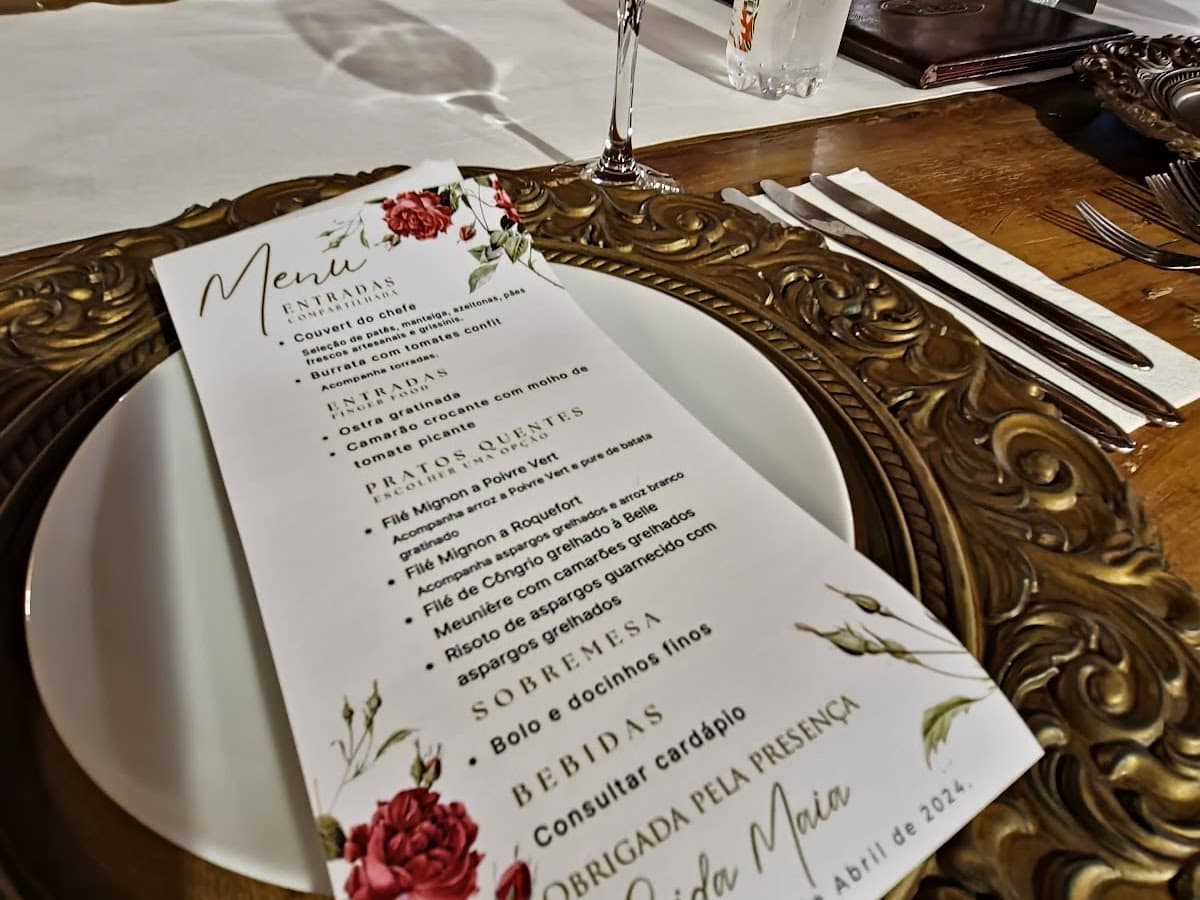 Menu
ENTRADAS
COMPARTILHADA
• Couvert do chefe
Seleção de patês, manteiga, azeitonas, pães
frescos artesanais e grissinis.
• Burrata com tomates confit
Acompanha torradas.
ENTRADAS
FINGER FOOD
• Ostra gratinada
• Camarão crocante com molho de
tomate picante
PRATOS QUENTES
ESCOLHER UMA OPÇÃO
• Filé Mignon a Poivre Vert
Acompanha arroz a Poivre Vert e pure de batata
gratinado
• Filé Mignon a Roquefort
Acompanha aspargos grelhados e arroz branco
• Filé de Côngrio grelhado à Belle
Meunière com camarões grelhados
• Risoto de aspargos guarnecido com
aspargos grelhados
SOBREMESA
• Bolo e docinhos finos
BEBIDAS
Consultar cardápio
OBRIGADA PELA PRESENÇA
Maia
Abril de 2024.